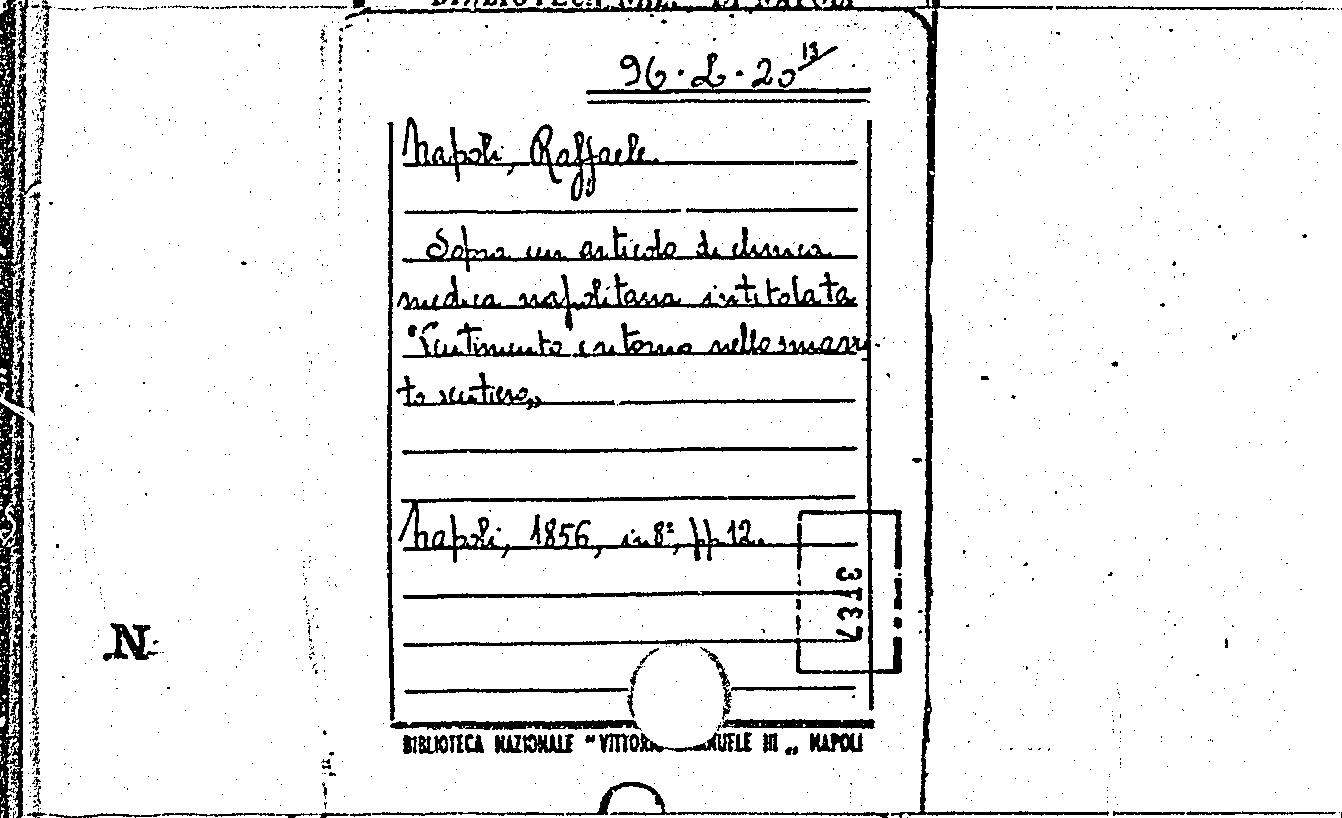 BIBLIOTECA NAZ. DI NAPOLI
96·L·20 13/
Napoli, Raffaele.
Sopra un articolo di clinica
medica napolitana intitolata
"Sentimento intorno nello smarri
to sentiero„
Napoli, 1856, in 8º, pp 12.
3137
N
BIBLIOTECA NAZIONALE "VITTORIO EMANUELE III„ NAPOLI